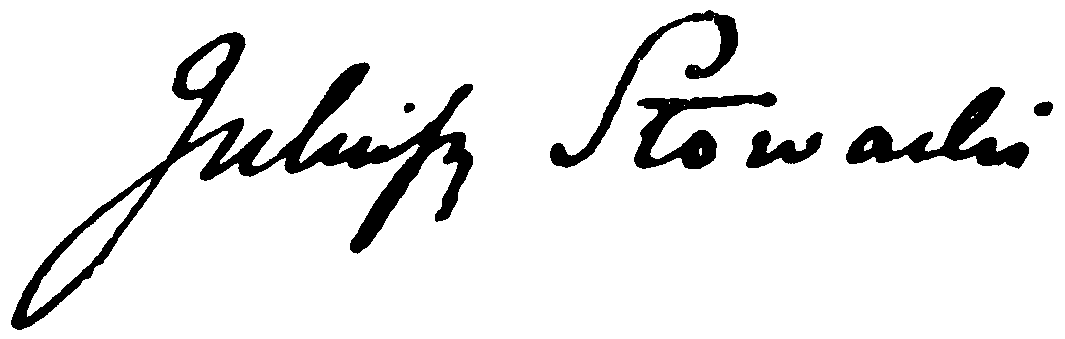 Juliusz Słowacki